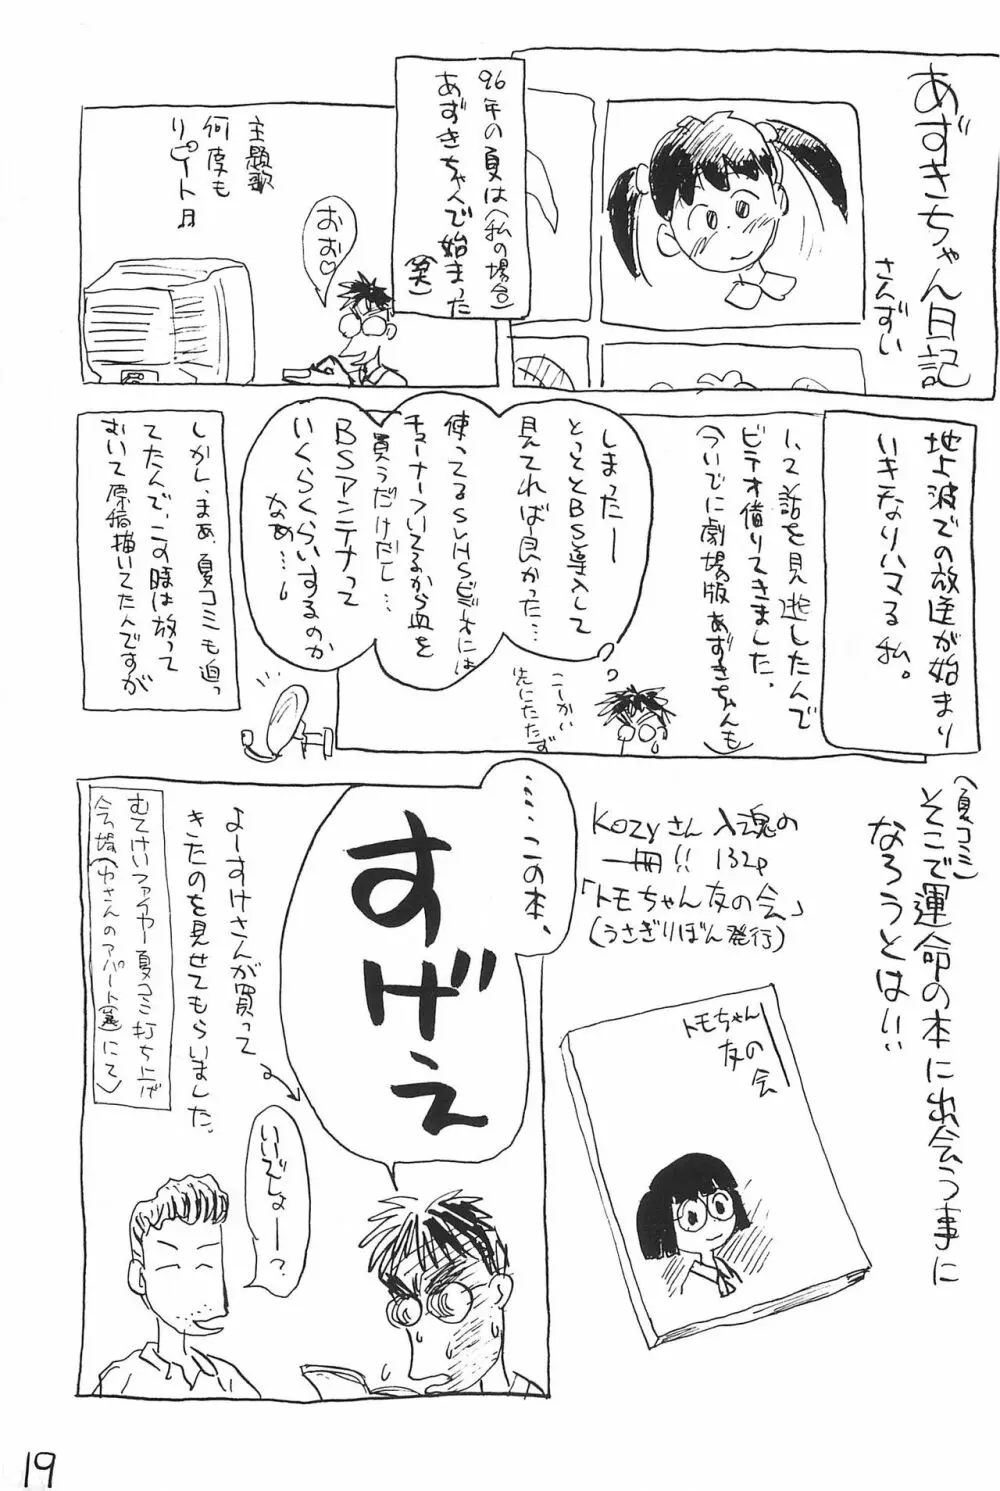 あずきちゃん日記。
さんずい
96年の夏は(私の場合)
あずきちゃんで始まった
(笑)
主題歌
何度も
リピート♪
おお♡
地上波での放送が始まり
いきなりハマる私。
1、2話を見逃したんで
ビデオ借りてきました。
(ついでに劇場版あずきちゃんも)
しまったー
とっととBS導入して
見てれば良かった…
使ってるSVHSビデオには
チューナーついてるから皿を
買うだけだし…
BSアンテナって
いくらくらいするのか
なあ…。
こーかい
先にたたず
しかし、まあ、夏コミも迫っ
てたんで、この時は放って
おいて原稿描いてたんですが
(夏コミ)
そこで運命の本に出会う事に
なろうとは!!
Kozyさん入魂の
一冊!! 132p
「トモちゃん友の会」
(うさぎりぼん発行)
トモちゃん
友の会
……この本、
すげえ
よーすけさんが買って
きたのを見せてもらいました。
むてけいファイヤー夏コミ打ち上げ
会場(ゆさんのアパート(笑)にて)
いいでしょー?
19